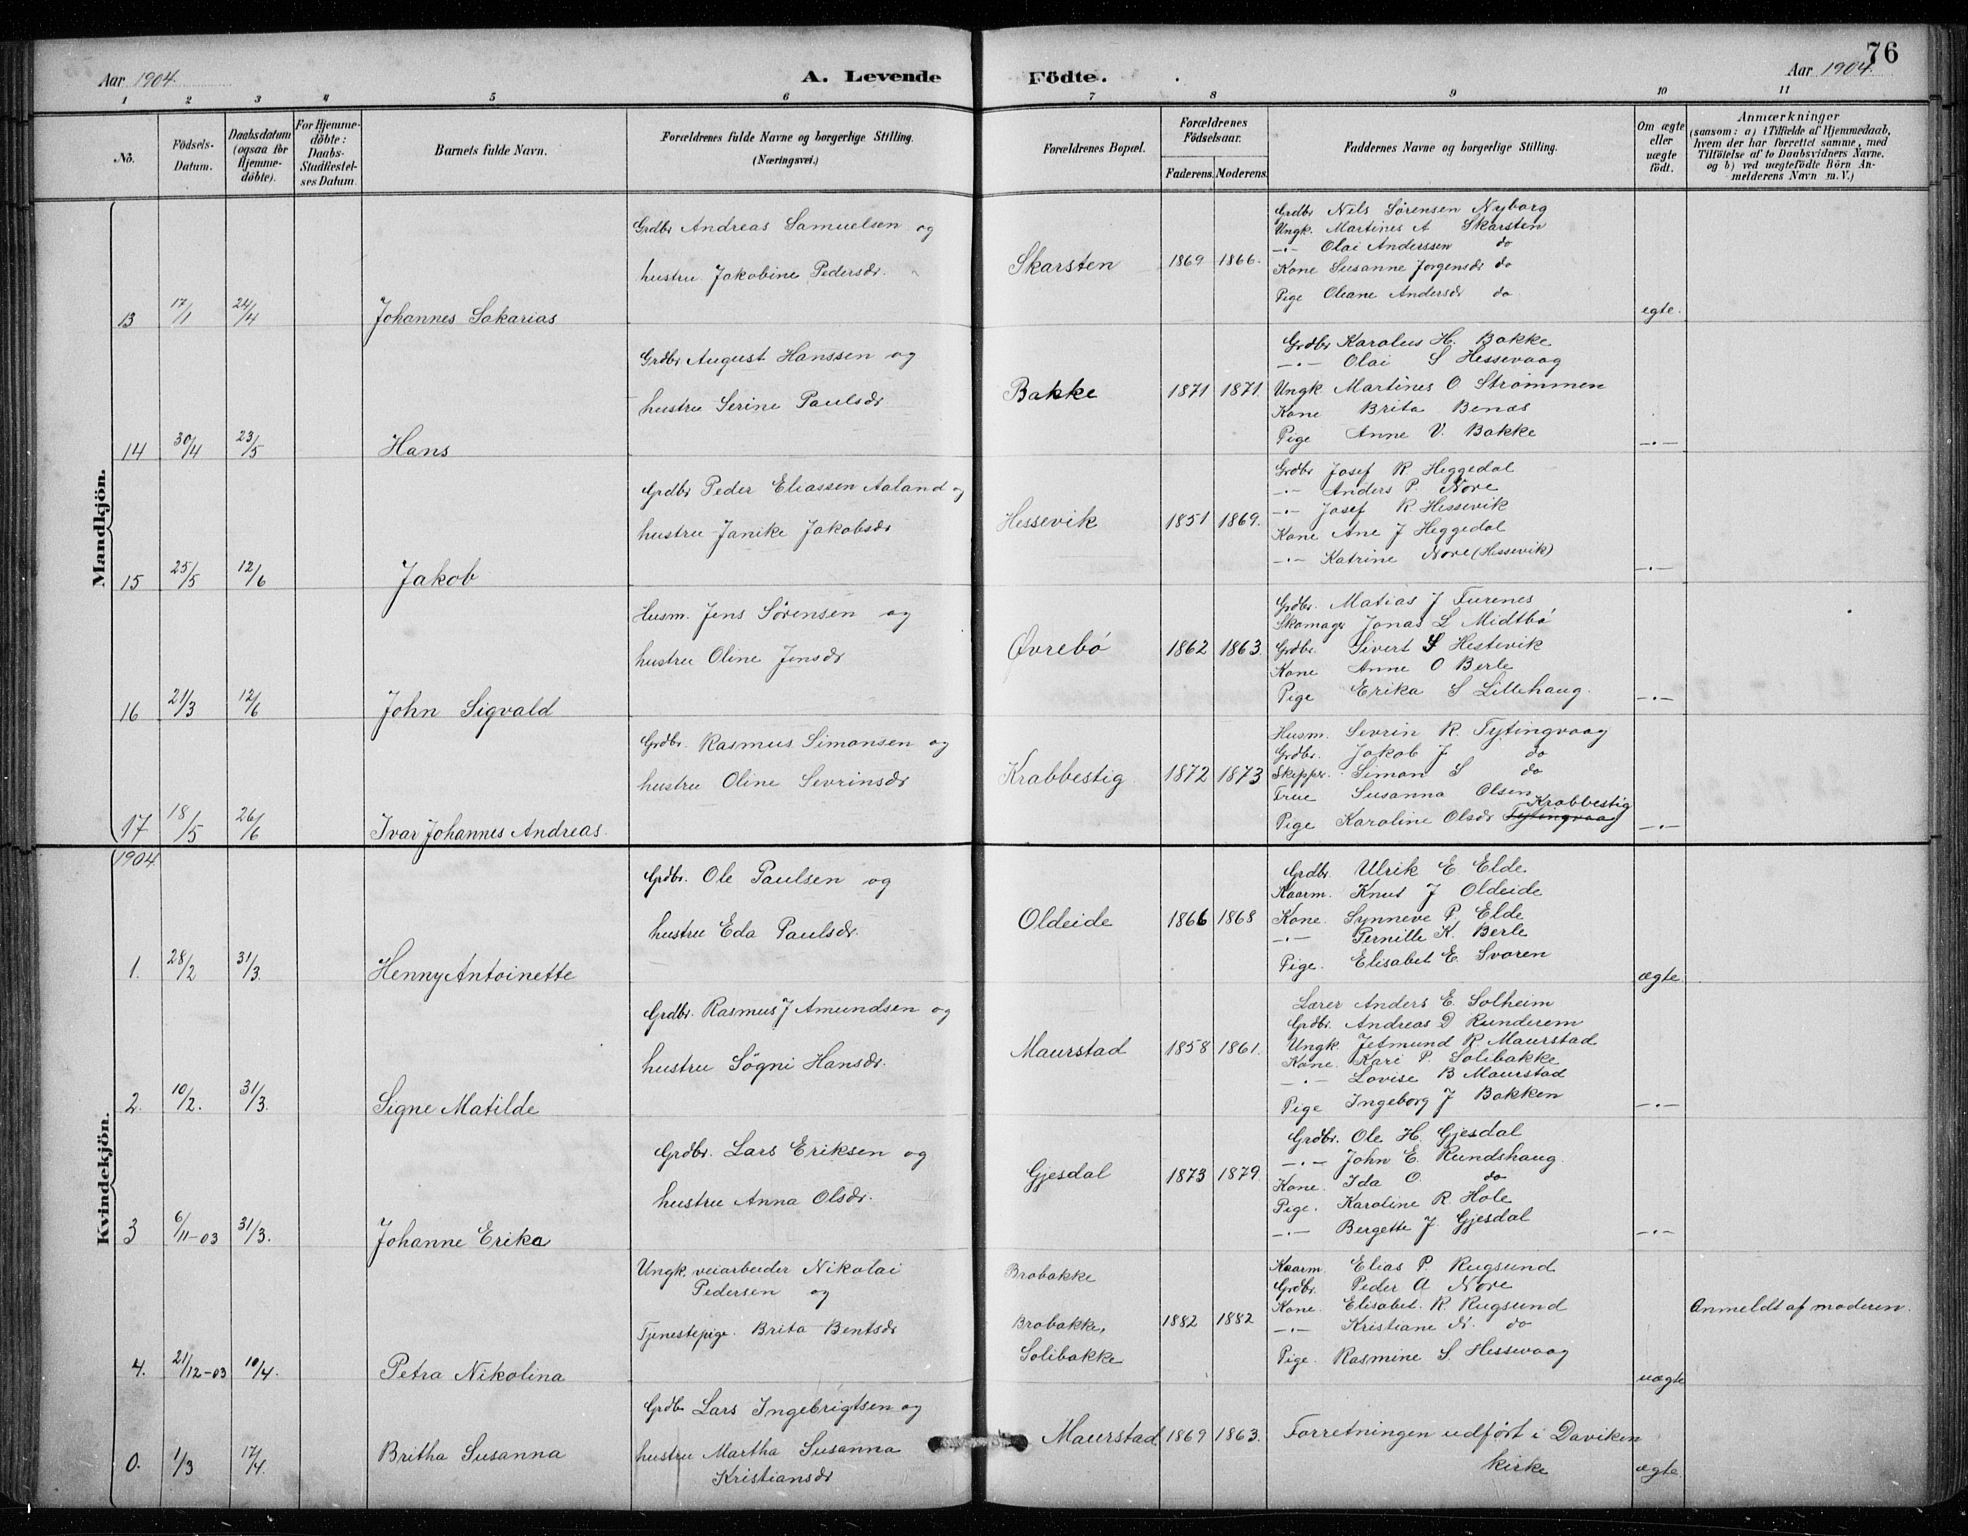 76
Aar 1904.
A. Levende Födte.
Aar 1904.
1 2 3 4 5 6 7 8 9 10 11
No.
Födsels-Datum.
Daabsdatum (ogsaa for Hjemme-döbte).
For Hjemme-döbte: Daabs-Stadfæstel-ses Datum.
Barnets fulde Navn.
Forældrenes fulde Navne og borgerlige Stilling. (Næringsvei.)
Forældrenes Bopæl.
Forældrenes Födselsaar.
Faderens. Moderens.
Faddernes Navne og borgerlige Stilling.
Om ægte eller uægte födt.
Anmærkninger
(saasom: a) i Tilfælde af Hjemmedaab,
hvem der har forrettet samme, med
Tilföielse af to Daabsvidners Navne.
og b) ved uægtefödte Börn An-
melderens Navn m. V.)
Mandkjön.
13 17/1 24/4 Johannes Sakarias
Grdbr Andreas Samuelsen og
hustru Jakobine Pedersdr.
Skarsten 1869 1866.
Grdbr Nils Sørensen Nyborg
Ungk. Martines A Skarsten
-"- Olai Anderssen do
Kone Susanne Jørgensdr do
Pige Oleane Andersdr do
egte.
14 30/4 23/5 Hans
Grdbr August Hanssen og
hustru Serine Paulsdr
Bakke 1871 1871.
Grdbr Karolus H. Bakke
-"- Olai S Hessevaag
Ungk Martines O Strømmen
Kone Brita Benas
Pige Anne V. Bakke
-"-
15 25/5 12/6 Jakob
Grdbr Peder Eliassen Aaland og
hustru Janike Jakobsdr
Hessevik 1851 1869.
Grdbr Josef R Heggedal
-"- Anders P. Nore
-"- Josef R Hessevik
Kone Ane J Heggedal
-"- Katrine Nore (Hessevik)
-"-
16 21/3 12/6 John Sigvald
Husm. Jens Sørensen og
hustru Oline Jensdr
Øvrebö 1862 1863.
Grdbr. Matias J Furenes
Skomager Jonas L Midtbö
Grdbr. Sivert S Hestevik
Kone Anne O Berle
Pige Erika S Lillehaug.
-"-
17 18/5 26/6 Ivar Johannes Andreas.
Grdbr. Rasmus Simonsen og
hustru Oline Sevrinsdr
Krabbestig 1872 1873
Husm. Sevrin R. Tytingvaag
Grdbr. Jakob J do
Skippr. Simon S do
Frue Susanna Olsen
Krabbestig
Pige Karoline Olsdr Tytingvaag
-"-
Kvindekjön.
1904
1. 28/2 31/3. Henny Antoinette
Grdbr. Ole Paulsen og
hustru Eda Paulsdr.
Oldeide 1866 1868
Grdbr. Ulrik E Elde
Kaarm. Knut J Oldeide
Kone. Synneve P. Elde
-"- Pernille K. Berle
Pige. Elisabet E. Svoren
ægte
2. 10/2. 31/3. Signe Matilde
Grdbr. Rasmus J Amundsen og
hustru Sögni Hansdr.
Maurstad 1858 1861.
Lærer Anders E. Solheim
Grdbr. Andreas D Runderem
Ungk. Jetmund R Maurstad
Kone. Kari P. Solibakke
-"- Lovise B Maurstad
Pige Ingeborg J Bakken
-"-
3 6/11-03 31/3. Johanne Erika
Grdbr. Lars Eriksen og
hustru Anna Olsdr.
Gjesdal 1873 1879.
Grdbr. Ole H. Gjesdal
-"- John E. Rundshaug.
Kone. Ida O. do
Pige. Karoline R. Hole
-"- Bergette J. Gjesdal
-"-
4. 21/12-03 10/4. Petra Nikolina
Ungk. veiarbeider Nikolai
Pedersen og
Tjenestepige. Brita Bentsdr
Brobakke
Brobakke,
Solibakke
1882 1882
Kaarm. Elias P. Rugsund
Grdbr. Peder A Nore
Kone. Elisabet. R. Rugsund
-"- Kristiane N. do
Pige. Rasmine S. Hessevaag
uægte
Anmeldt af moderen.
0. 1/3 17/4. Britha Susanna
Grdbr Lars Ingebrigtsen og
hustru Martha Susanna
Kristiansdr
Maurstad 1869 1863.
Forretningen udført i Daviken
kirke
ægte